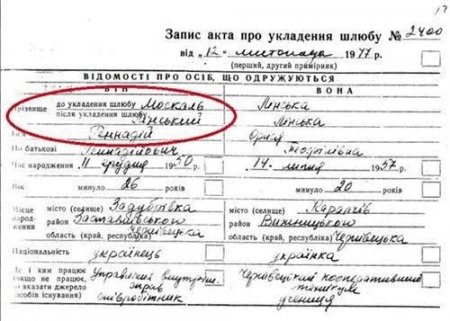 Запис акта про укладення шлюбу № 2400
від „12" листопада 1977 р.
(перший, другий примірник)
ВІДОМОСТІ ПРО ОСІБ, ЩО ОДРУЖУЮТЬСЯ
ВІН ВОНА
Прізвище до укладення шлюбу Москаль Лінська
після укладення шлюбу Лінський Лінська
Ім'я Геннадій
По батькові Геннадійович Теофілівна
Час народження 11 грудня 1950 р. 14 липня 1957 р.
Вік минуло 26 років минуло 20 років
Місце народження місто (селище) Задубрівка місто (селище) Карапчів
район Заставнівського район Вижницького
область (край, республіка) Чернівецька область (край, республіка) Чернівецька
Національність українець українка
Де і ким працює Управління внутрішн. Чернівецький кооперативний
(якщо не працює, справ технікум
то вказати джерело співробітник учениця
засобів існування)